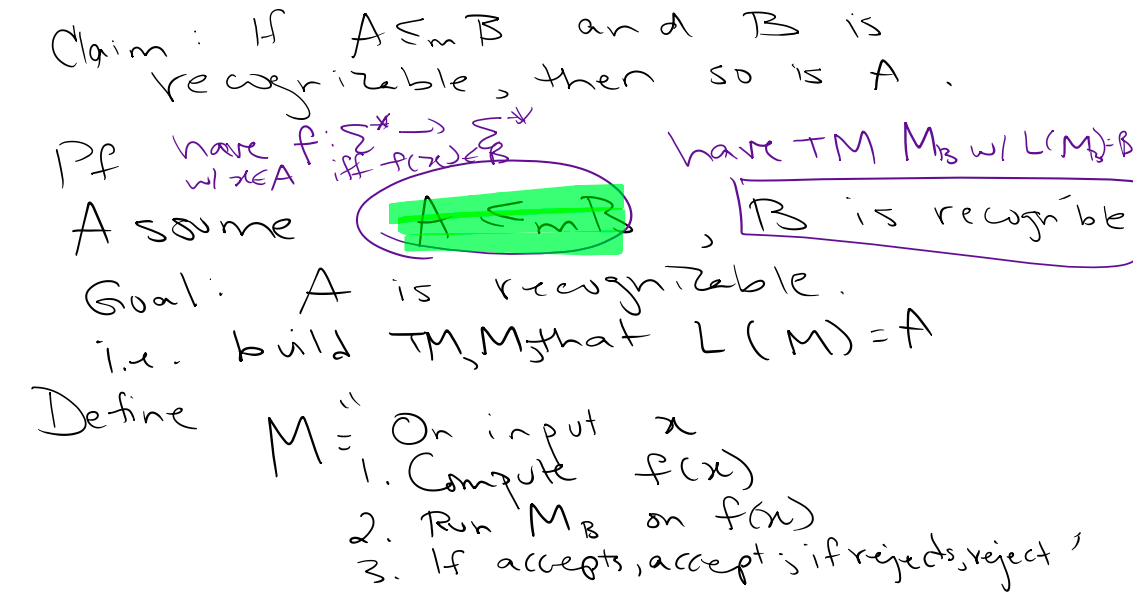 Claim: If A ≤m B and B is
recognizable, then so is A.
Pf have f: Σ* → Σ* have TM MB w/ L(MB)=B
w/ x∈A iff f(x)∈B
Assume A ≤m B, B is recogn'ble
Goal: A is recognizable.
i.e. build TM, M, that L(M) = A
Define M = " On input x
1. Compute f(x)
2. Run MB on f(x)
3. If accepts, accept; if rejects, reject "